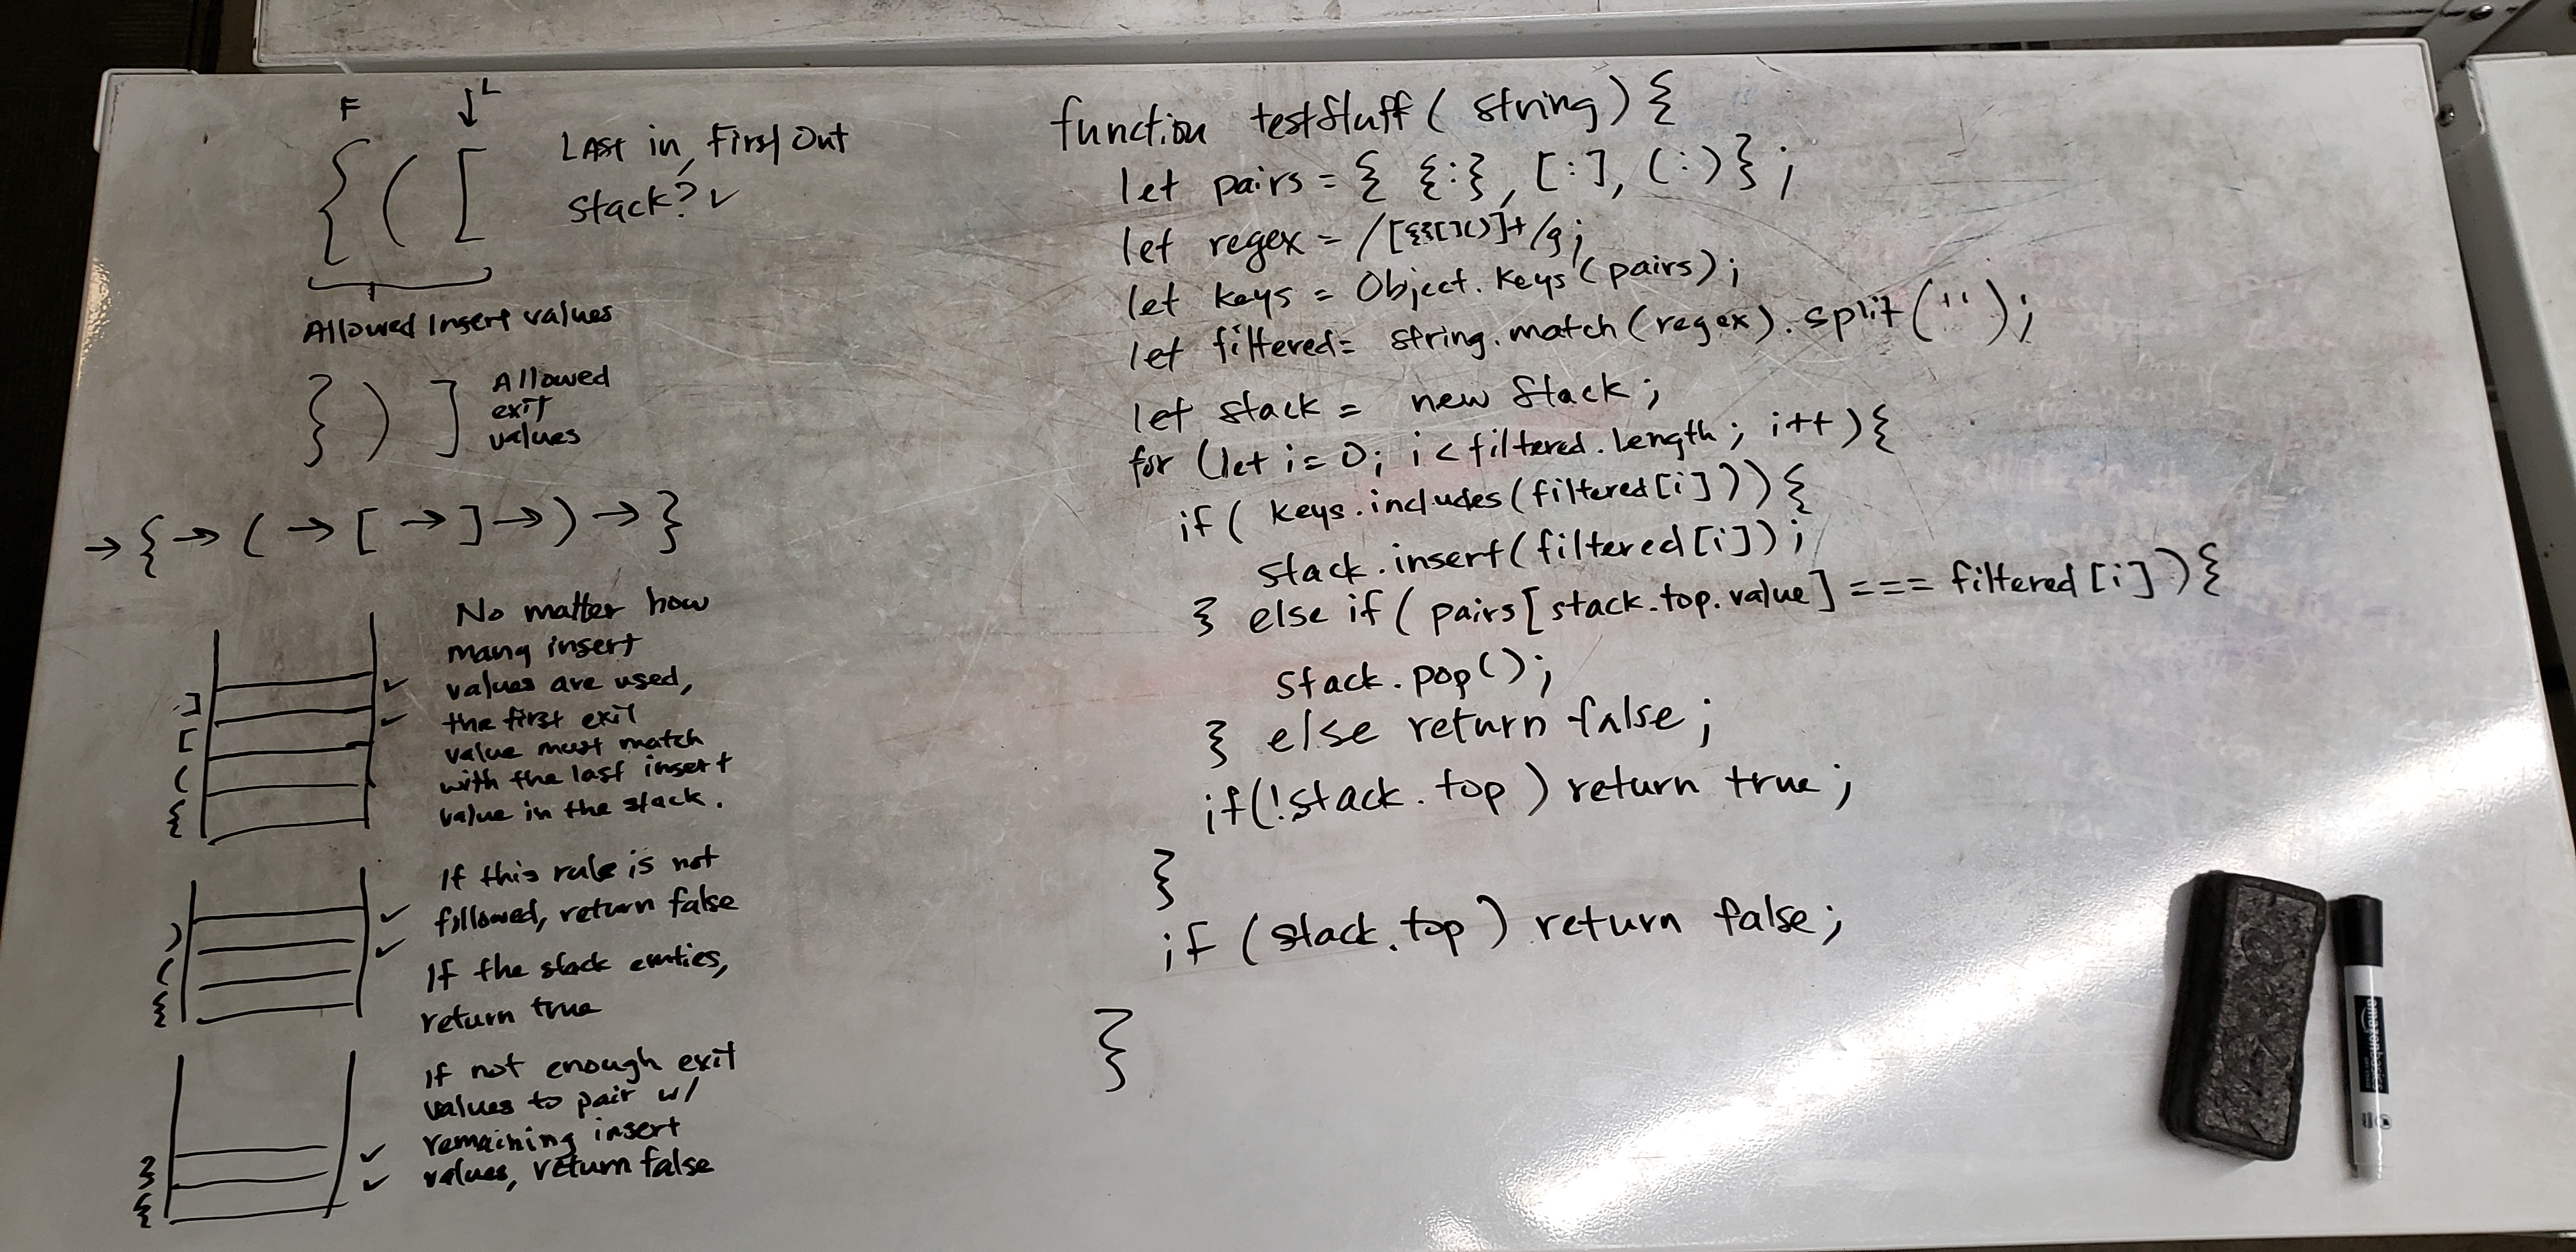 F → L
{ ( [
Last in, first out
Stack? ✓
Allowed insert values
} ) ]
Allowed
exit
values
→ { → ( → [ → ] → ) → }
]
[
(
{
No matter how
many insert
values are used,
the first exit
value must match
with the last insert
value in the stack.
)
(
{
If this rule is not
followed, return false
If the stack emties,
return true
}
{
If not enough exit
values to pair w/
remaining insert
values, return false
function testStuff(string){
let pairs = { {:}, [:], (:)};
let regex = /[{}[]()]+/g;
let keys = Object.keys(pairs);
let filtered = string.match(regex).split('');
let stack = new Stack;
for (let i=0; i<filtered.length; i++){
if (keys.includes(filtered[i])){
stack.insert(filtered[i]);
} else if (pairs[stack.top.value] === filtered[i]){
stack.pop();
} else return false;
if(!stack.top) return true;
}
if (stack.top) return false;
}
amazonbasics